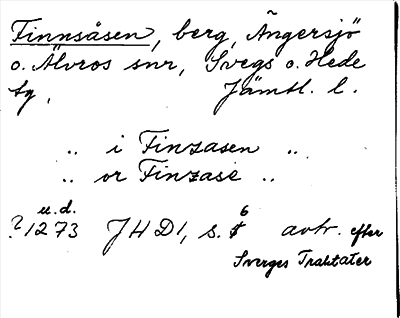 Finnsåsen, berg, Ängersjö
o. Älvros snr, Svegs o. Hede
tg, Jämtl. l.
" i Finzasen "
" or Finzase "
u.d.
?1273 JHD1, s. 6 avtr. efter
Sverges Traktater